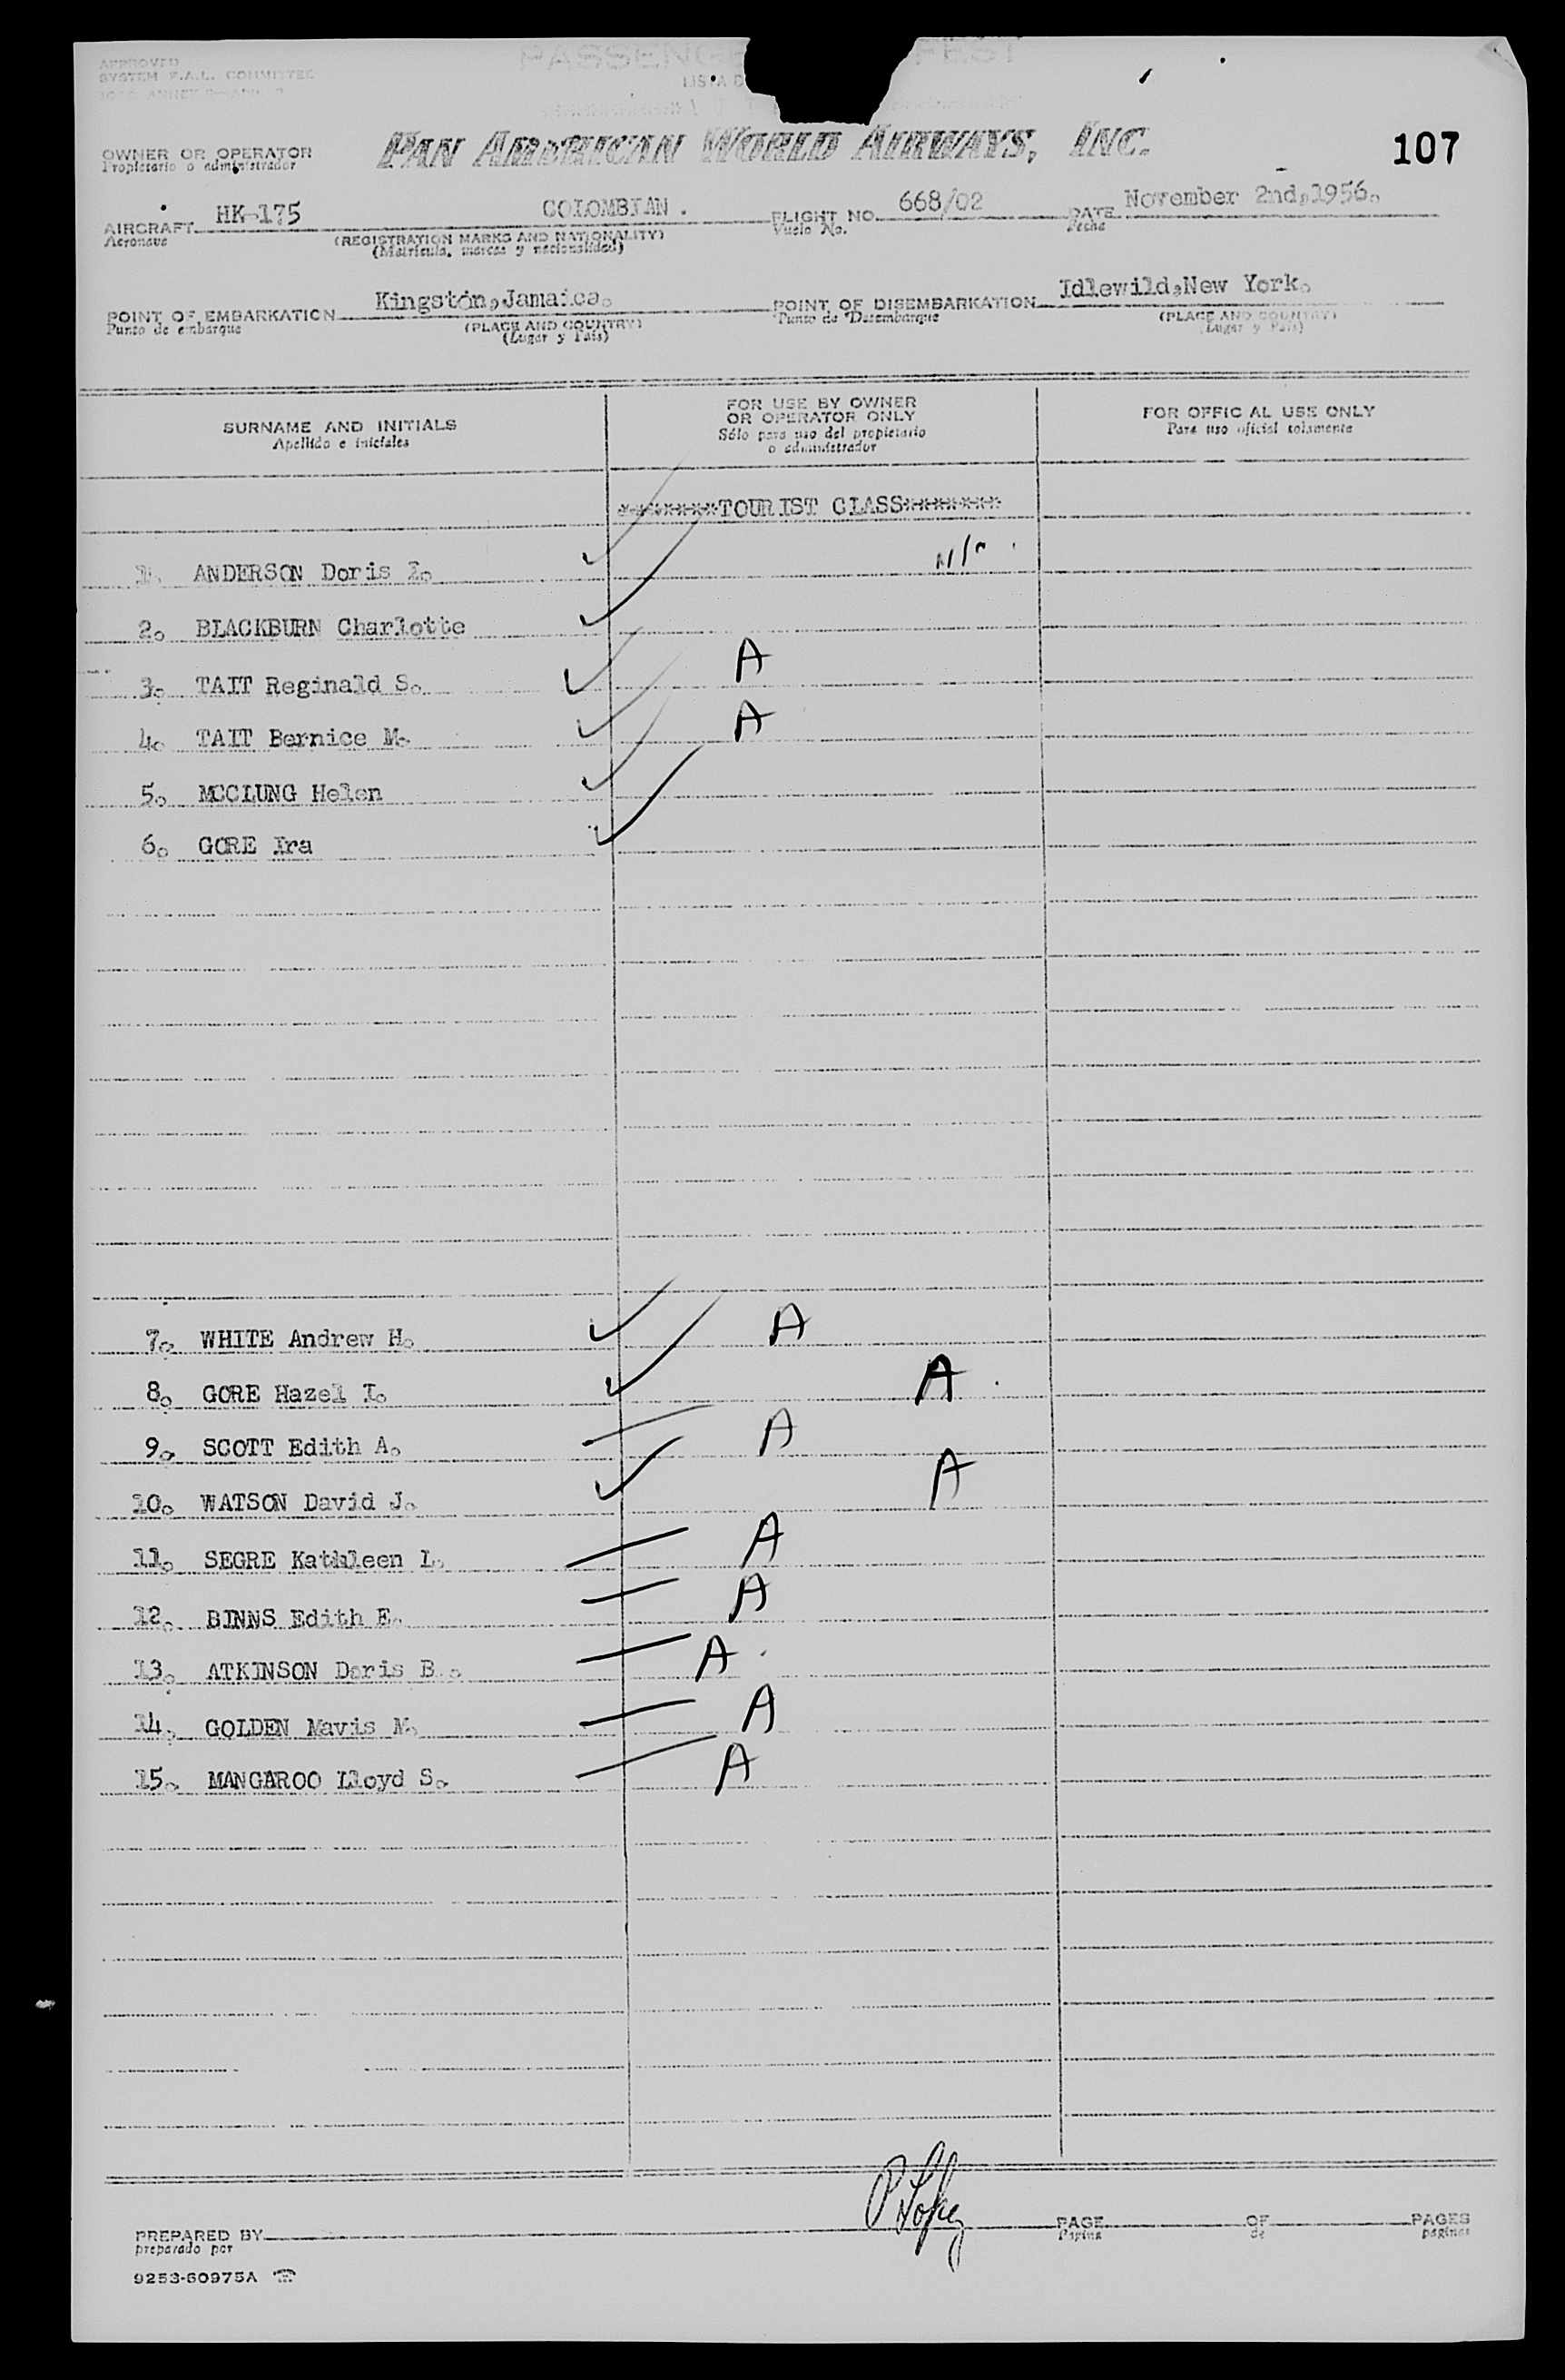 APPROVED
SYSTEM F.A.L. COMMITTEE
LISTA D
OWNER OR OPERATOR
Propietario o administrador
PAN AMERICAN WORLD AIRWAYS, INC.
107
AIRCRAFT HK-175 COLOMBIAN. FLIGHT NO. 668/02 DATE November 2nd,1956.
Aeronave (REGISTRATION MARKS AND NATIONALITY) Vuelo No. Fecha
(Matrícula, marcas y nacionalidad)
POINT OF EMBARKATION Kingston,Jamaica. POINT OF DISEMBARKATION Idlewild,New York.
Punto de embarque (PLACE AND COUNTRY) Punto de Desembarque (PLACE AND COUNTRY)
(Lugar y País) (Lugar y País)
SURNAME AND INITIALS
Apellido e iniciales
FOR USE BY OWNER
OR OPERATOR ONLY
Sólo para uso del propietario
o administrador
FOR OFFIC AL USE ONLY
Para uso oficial solamente
*******TOURIST CLASS*******
1. ANDERSON Doris
2. BLACKBURN Charlotte
3. TAIT Reginald S. A
4. TAIT Bernice M. A
5. MCCLUNG Helen
6. GORE Ira
7. WHITE Andrew H. A
8. GORE Hazel I. A
9. SCOTT Edith A. A
10. WATSON David J. A
11. SEGRE Kathleen L. A
12. BINNS Edith E. A
13. ATKINSON Doris B. A
14. GOLDEN Mavis M. A
15. MANGAROO Lloyd S. A
P Lopez
PREPARED BY PAGE OF PAGES
preparado por Página de páginas
9253-60975A